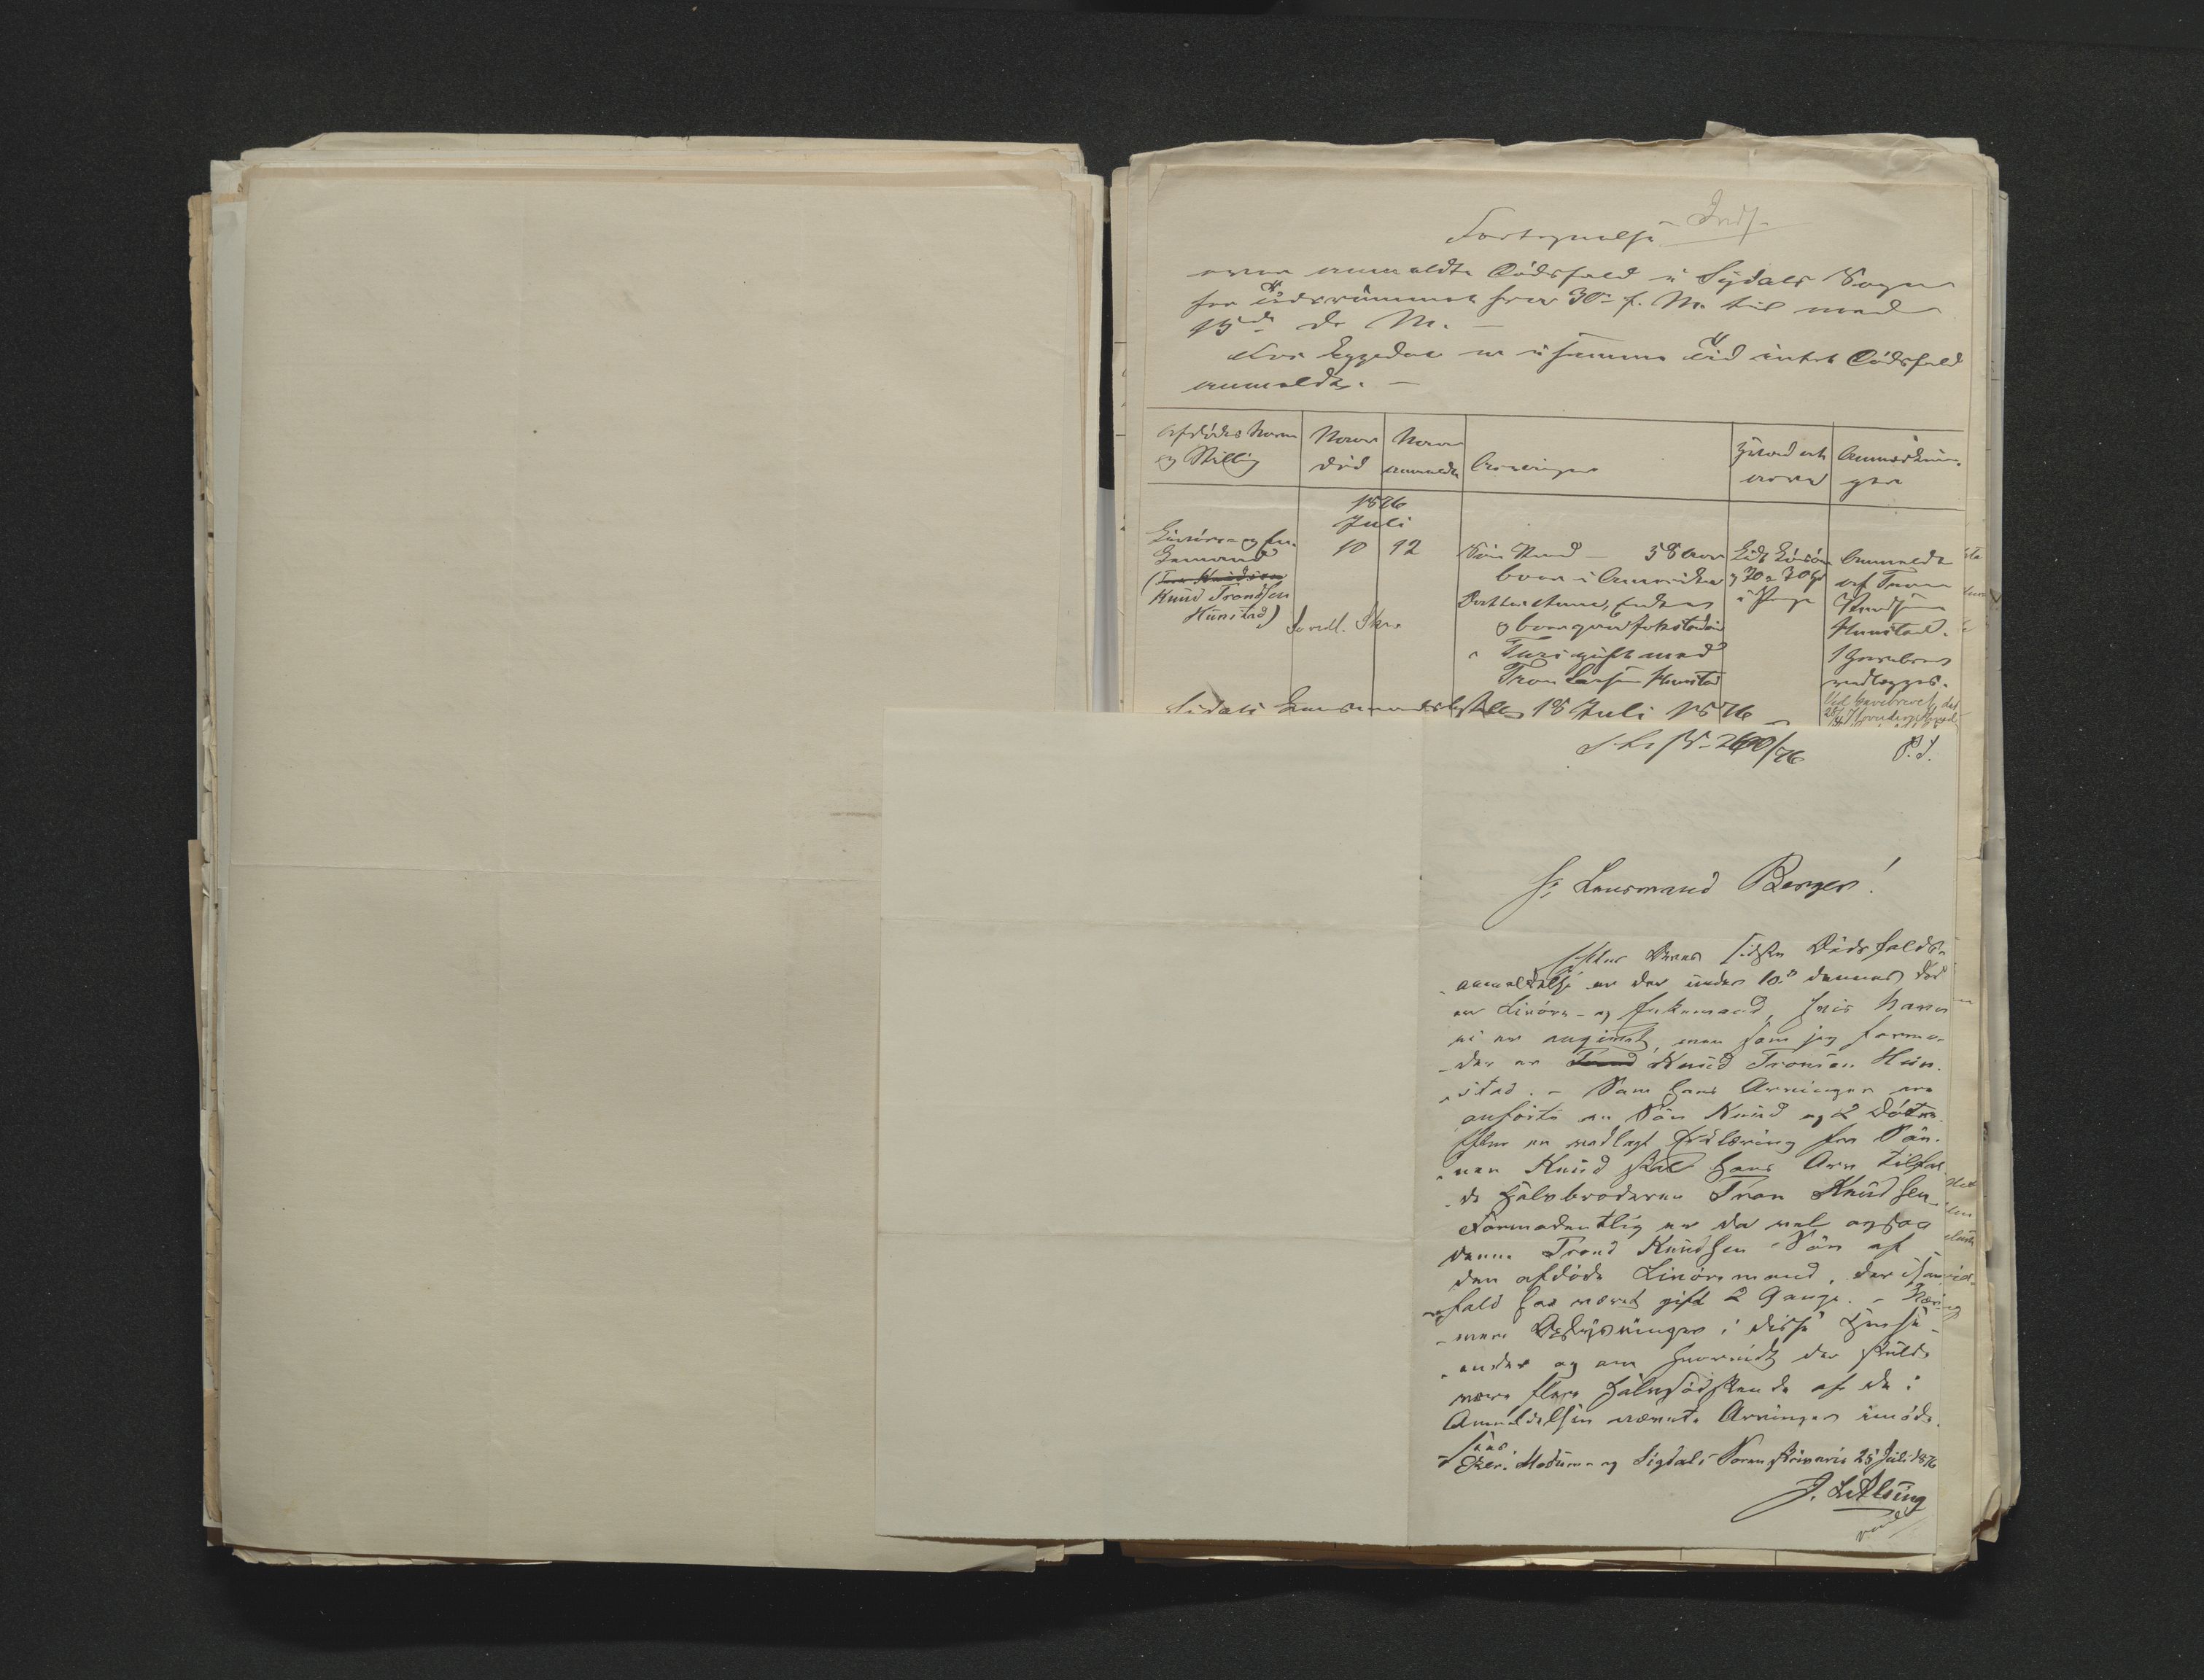 Indf.
Fortegnelse
over anmeldte Dødsfald i Sigdals Sogn
for Tidsrummet fra 30te f. M. til med
15de ds M. —
For Eggedal er i samme Tid intet Dødsfald
anmeldt. —
Afdødes Navn
og Stilling
Naar
død
Naar
anmeldt
Arvinger
Hvad ert
arves
Anmærknin-
ger
1876
Juli
Livøres- og En-
kemand
(Tron Knudsen
Knud Trondsen
Hunstad)
10
12
Søn Knud — 38 Aar
boer i Amerika
Datter Anne, Enke
og boer paa
" Turi gift med
Tron Larsen Hunstad
i Penge
Anmeldt
af Tron
Knudsen
Hunstad.
1 Gavebrev
vedlægges.
Sigdals Lensmandsbestilling 18 Juli 1876
S. k. No 260/76
P.S.
Hr Lensmand Berger!
Efter Deres sidste Dødsfalds-
anmeldelse er der under 10de dennes død
en Livøres- og Enkemand, hvis Navn
ei er angivet, men som jeg formo-
der er Trond Knud Tronsen Hun-
stad. — Som hans Arvinger ere
anførte en Søn Knud og 2 Døtre.
Efter en vedlagt Erklæring fra Søn-
nen Knud skal hans Arv tilfal-
de Halvbroderen Tron Knudsen.
Formodentlig er da vel ogsaa
denne Trond Knudsen Søn af
den afdøde Livøresmand, der isaa-
fald har været gift 2 Gange. — Nær-
mere Oplysninger i disse Hense-
ender og om hvorvidt der skulde
være flere Halvsødskende af de i
Anmeldelsen nævnte Arvinger imøde-
sees.
Eker, Modums og Sigdals Sorenskriveri 25 Juli 1876